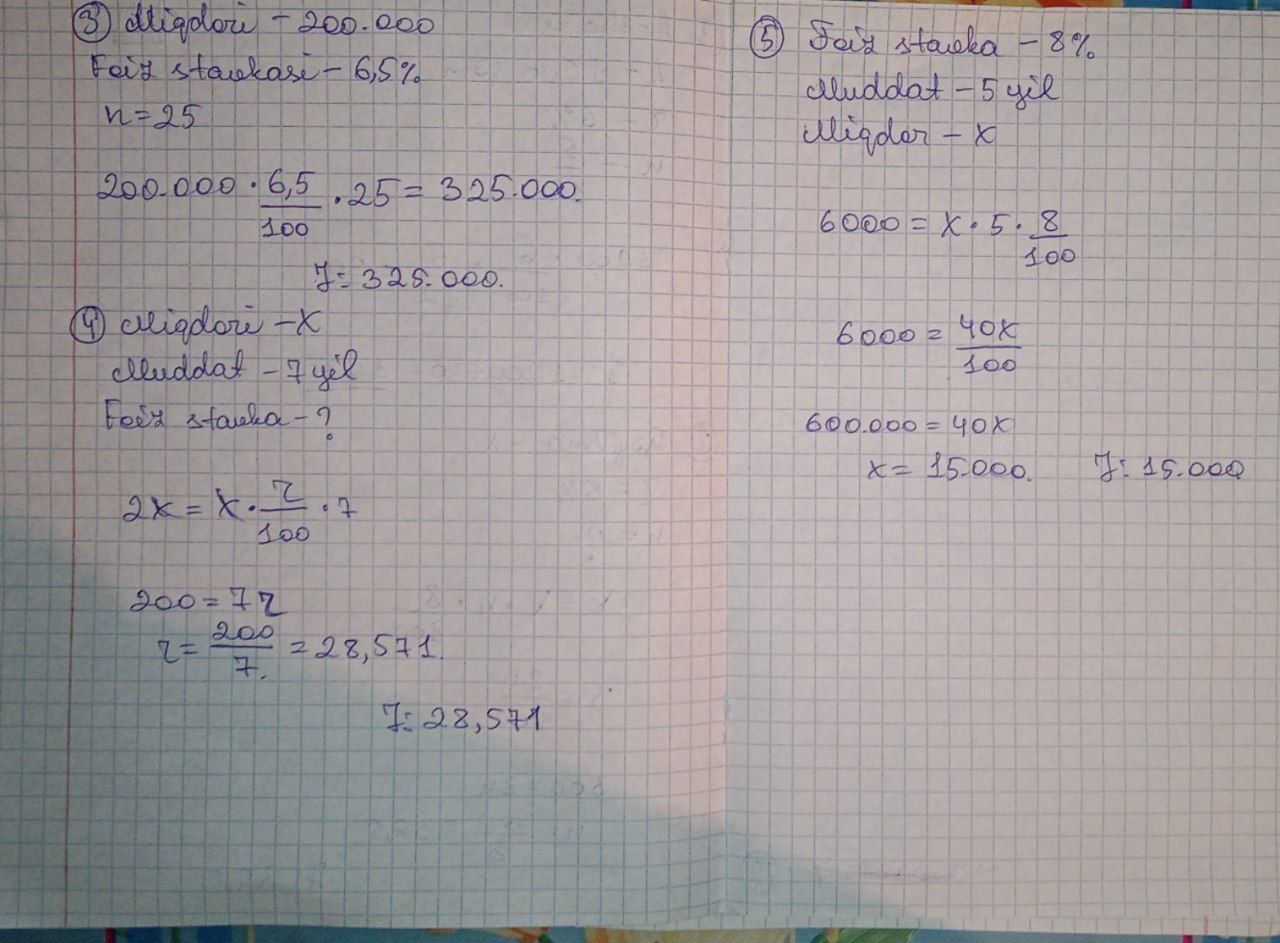 ③ Miqdori - 200.000
Foiz stavkasi - 6,5%
n = 25
200.000 · 6,5/100 · 25 = 325.000.
J: 325.000.
④ Miqdori - x
Muddat - 7 yil
Foiz stavka - ?
2x = x · r/100 · 7
200 = 7r
r = 200/7. = 28,571.
J: 28,571
⑤ Foiz stavka - 8%
Muddat - 5 yil
Miqdor - x
6000 = x · 5 · 8/100
6000 = 40x/100
600.000 = 40x
x = 15.000. J: 15.000